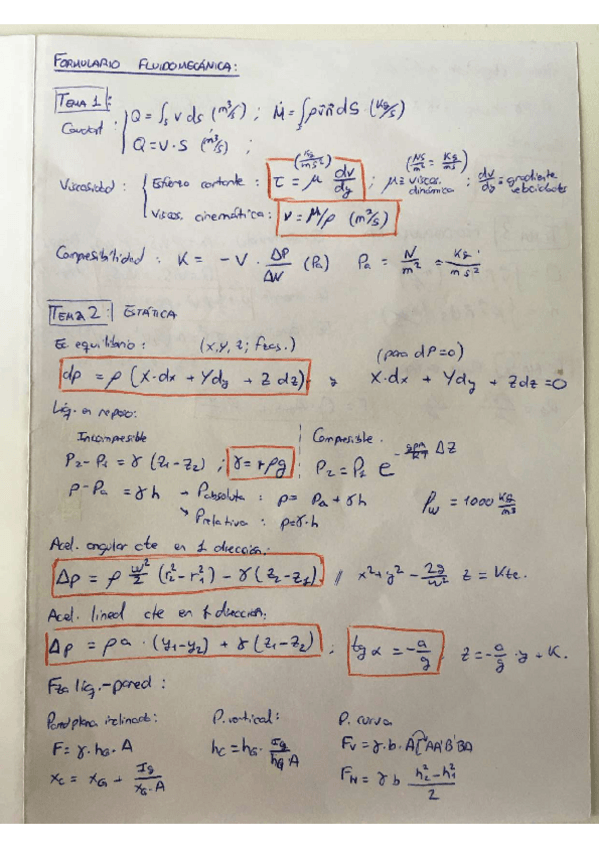 FORMULARIO FLUIDOMECÁNICA:
TEMA 1:
Caudal: Q = ∫s v ds (m³/s) ; Ṁ = ∫s ρ v̄ n̄ dS (kg/s)
Q = V · S (m³/s) ;
Viscosidad: Esfuerzo cortante: τ = μ dv/dy (kg/ms²) ; μ ≡ viscos. dinámica (Ns/m² = kg/ms) ; dv/dy ≡ gradiente velocidades
Viscos. cinemática: ν = μ/ρ (m²/s)
Compresibilidad: K = - V · ΔP/ΔV (Pa) Pa = N/m² = kg/ms²
TEMA 2: ESTÁTICA
Ec equilibrio: (x, y, z; fzas.) (para dP=0)
dp = ρ (X·dx + Ydy + Z dz) y X·dx + Ydy + Zdz = 0
Líq. en reposo:
Incompresible Compresible.
P₂ - P₁ = γ (z₁ - z₂) ; γ = + ρg P₂ = P₁ e
p - Pa = γ h → Pabsoluta: p = Pa + γh ρw = 1000 kg/m³
↘ Prelativa: p = γ·h
Acel. angular cte en 1 dirección:
Δp = ρ w²/2 (r₂² - r₁²) - γ (z₂ - z₁) // x² + y² - 2g/w² z = Kte.
Acel. lineal cte en 1 dirección:
Δp = ρa · (y₁ - y₂) + γ (z₁ - z₂) ; tg α = - a/g z = - a/g · y + K.
Fza líq.-pared:
Pared plana inclinada: P. vertical: P. curva
F = γ · hG · A hc = hG · Ig/hG A Fv = γ · b · A[AA'B'BA
xc = xG + Ig/xG·A FH = γ b (h₂² - h₁²)/2